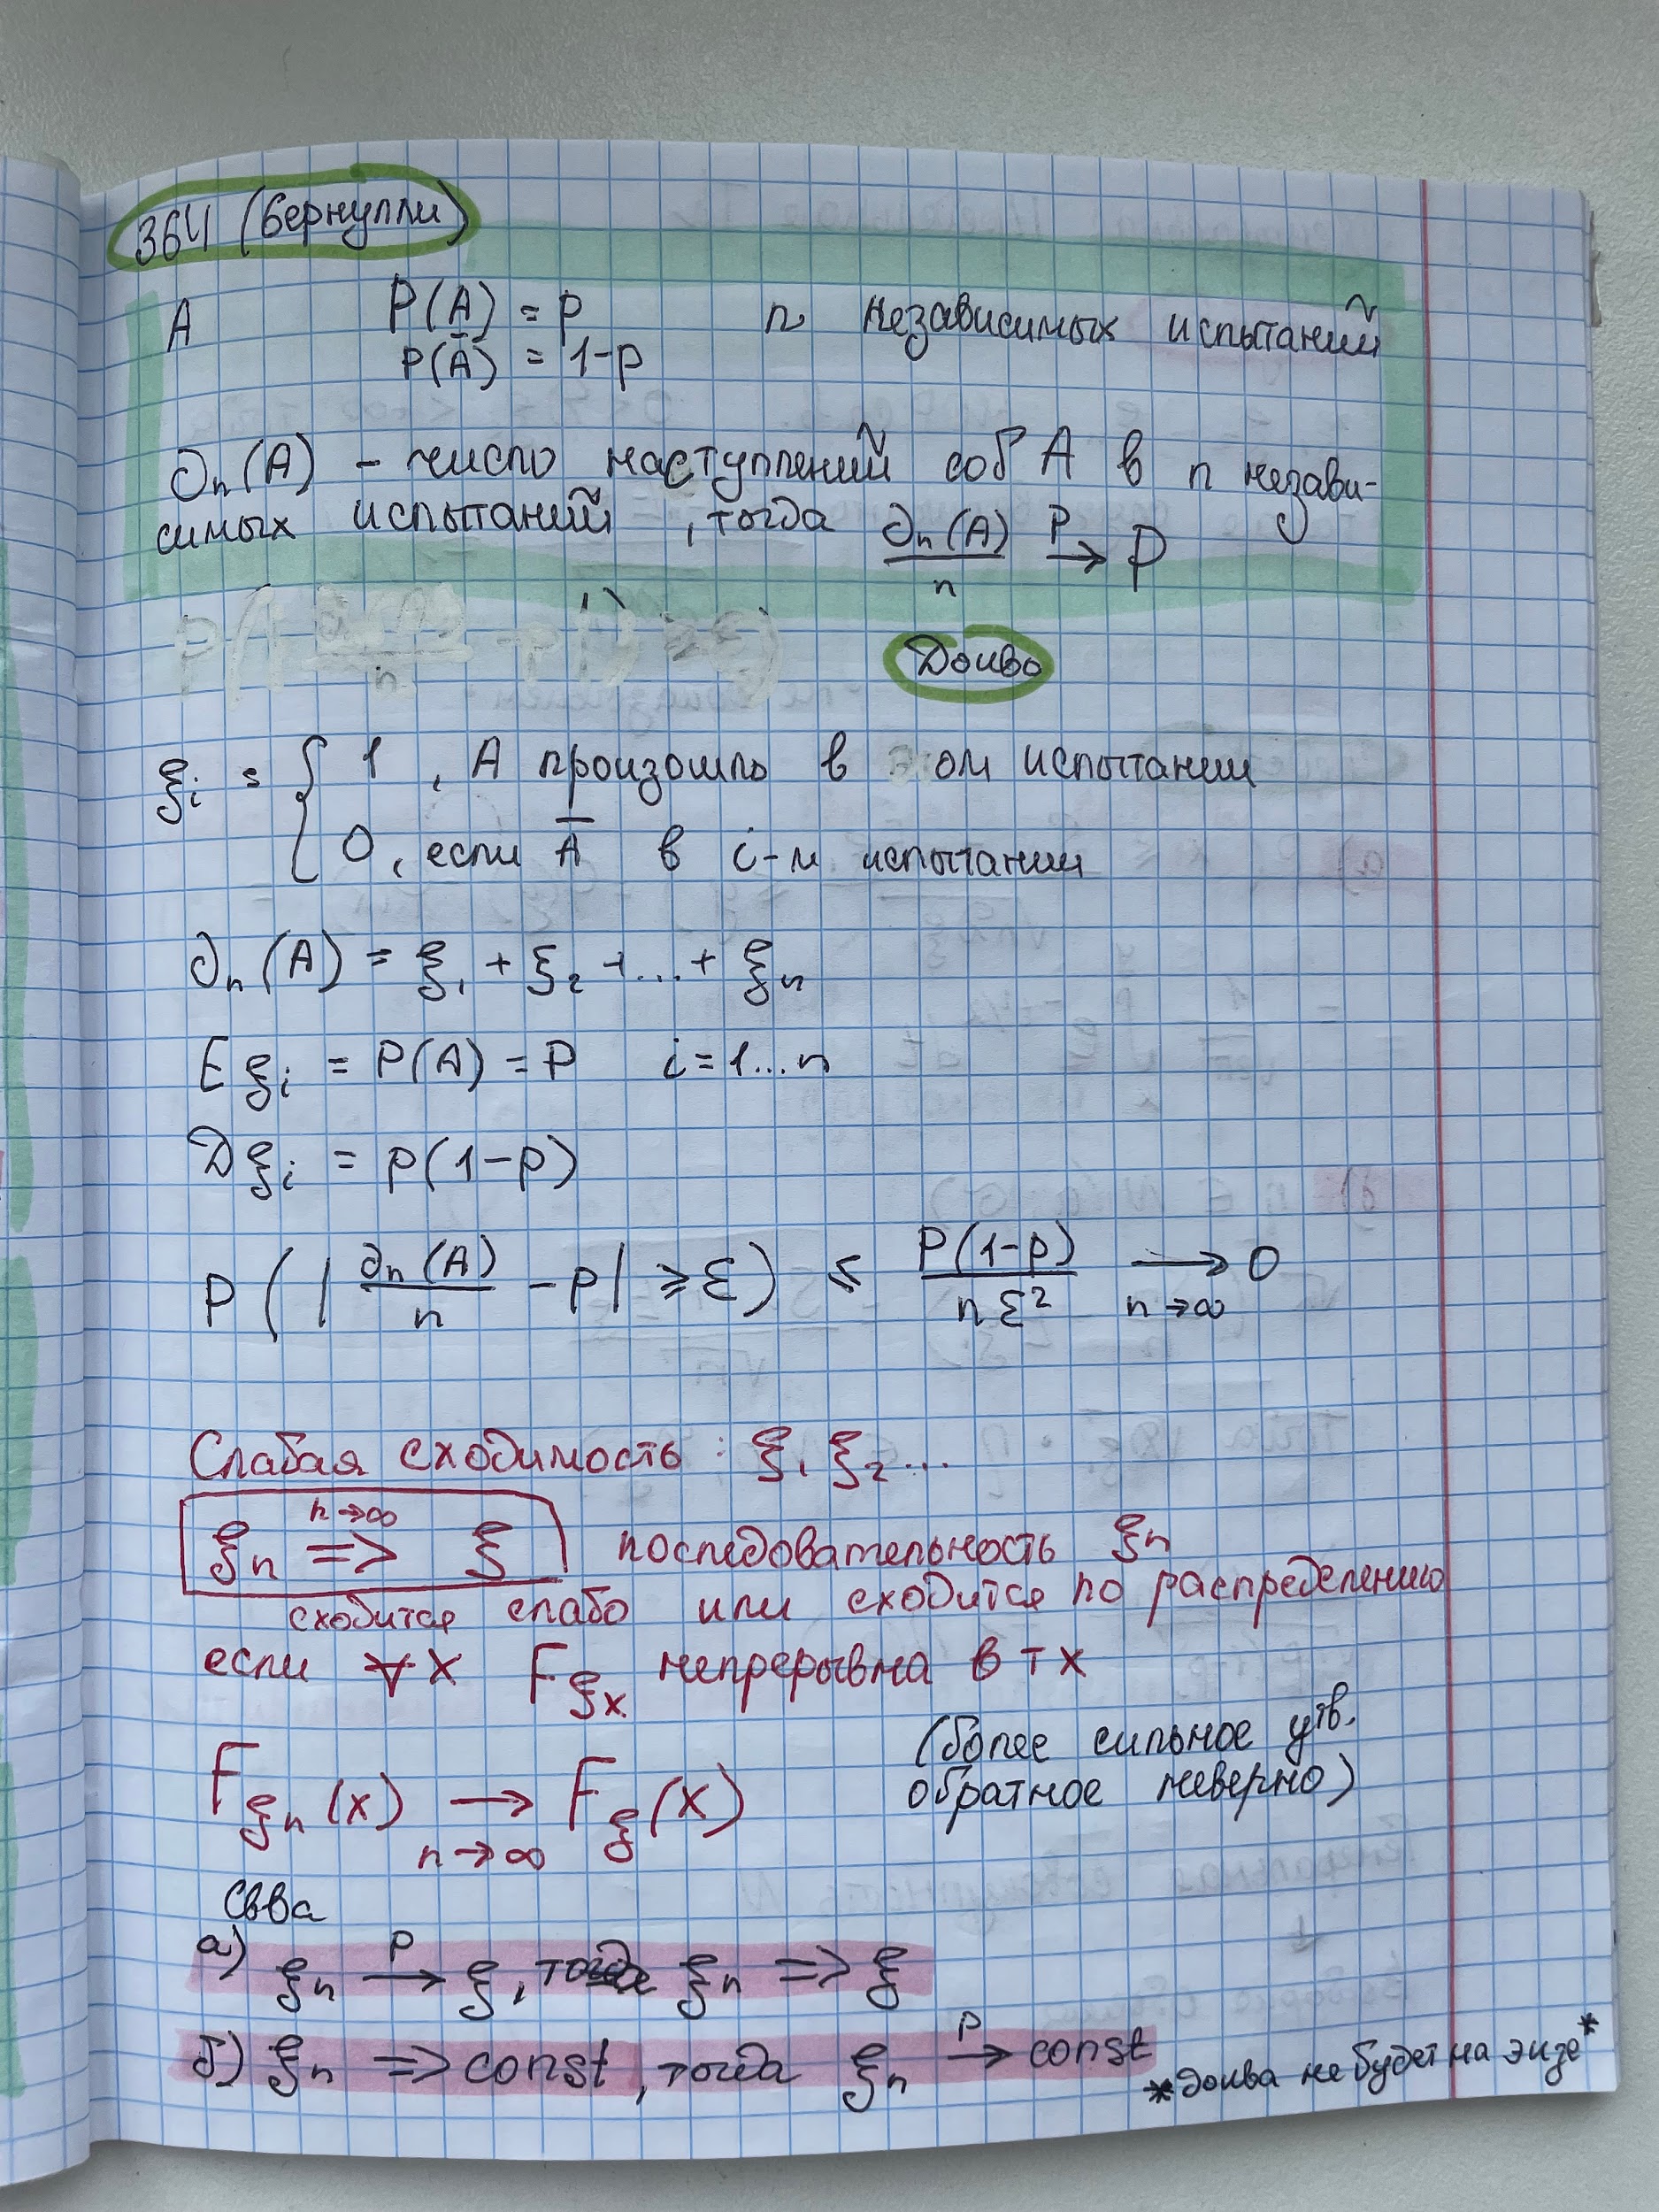 ЗБЧ (Бернулли)
A P(A) = p n независимых испытаний
P(Ā) = 1-p
∂n(A) - число наступлений соб A в n незави-
симых испытаний, тогда ∂n(A)/n →ᴾ p
Док-во
ξi = { 1, A произошло в ом испытании
0, если Ā в i-м испытании
∂n(A) = ξ₁ + ξ₂ +...+ ξn
Eξi = P(A) = P i=1...n
Дξi = p(1-p)
P(|∂n(A)/n - p| ≥ ε) ≤ P(1-p)/nε² → 0 n→∞
Слабая сходимость: ξ₁ ξ₂...
ξn => ξ n→∞ последовательность ξn
сходится слабо или сходится по распределению
если ∀x Fξx непрерывна в т x
Fξn(x) → Fξ(x) n→∞
(более сильное утв.
обратное неверно)
Свва
а) ξn →ᴾ ξ, тогда ξn => ξ
б) ξn => const, тогда ξn →ᴾ const
*док-ва не будет на экзе*